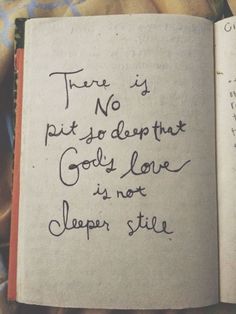 There is
No
pit so deep that
God's love
is not
deeper still